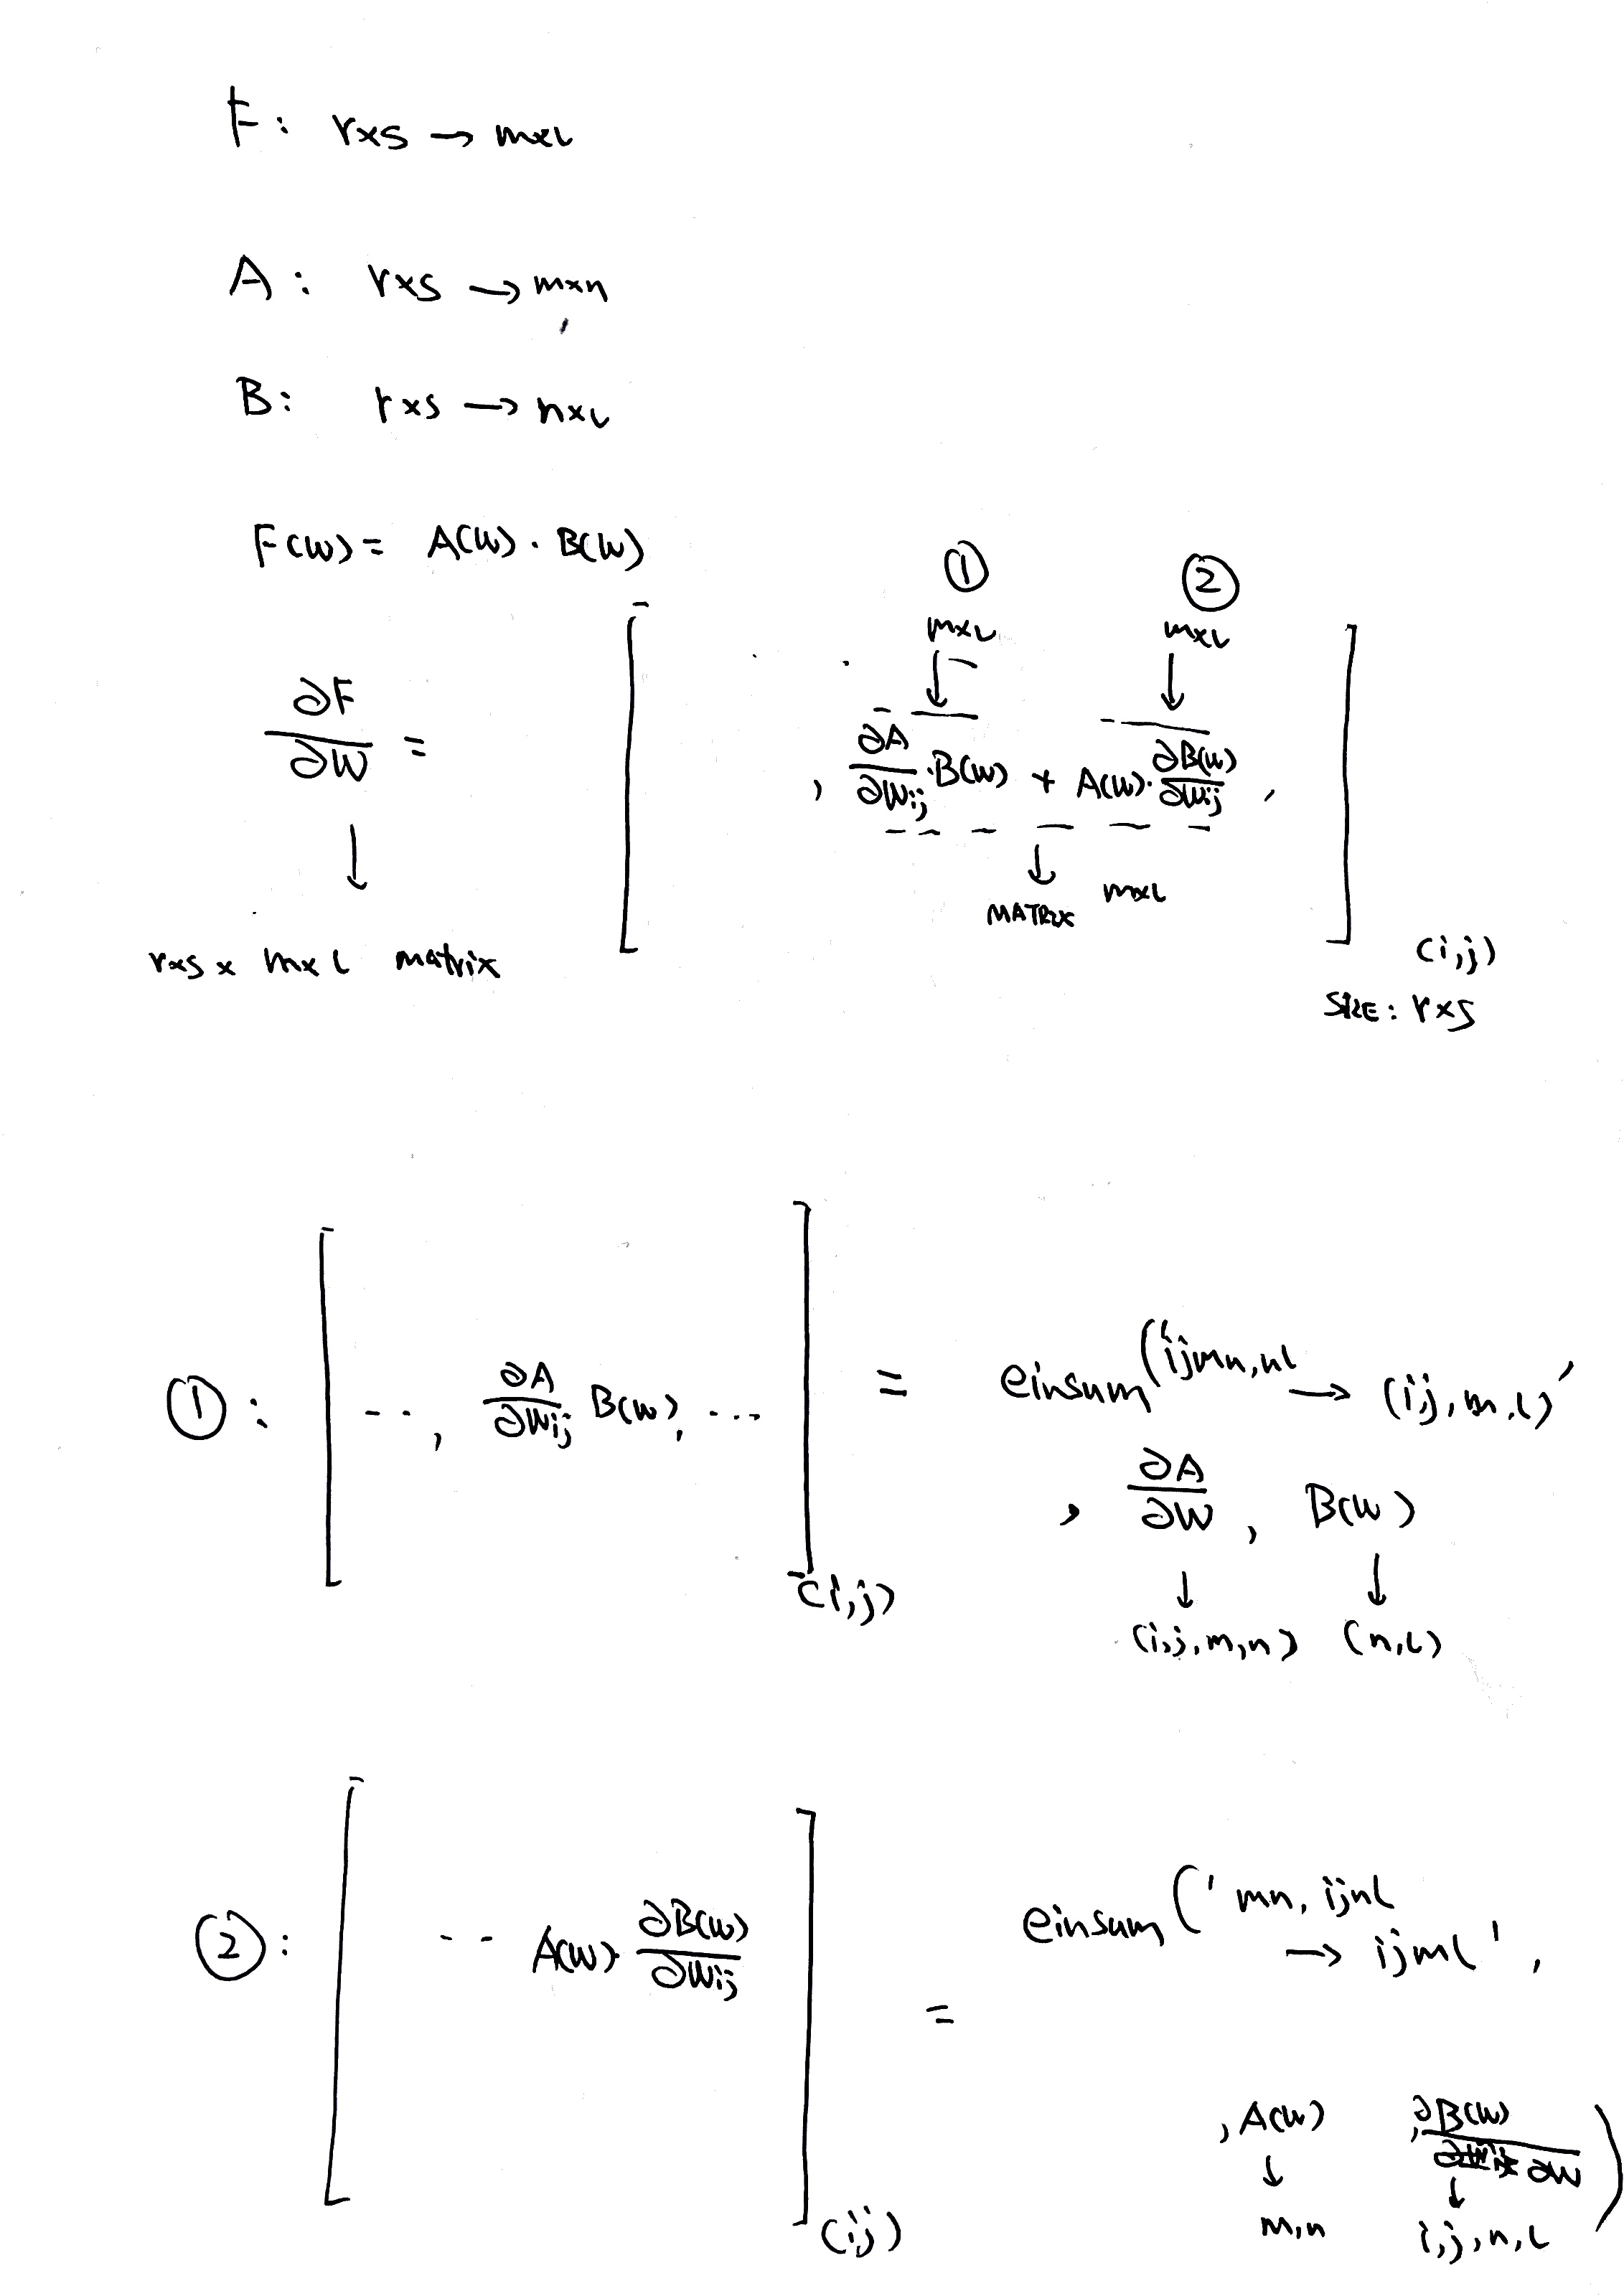 F: r×s → m×l
A: r×s → m×n
B: r×s → n×l
F(W) = A(W) · B(W)
① ②
m×l m×l
∂F/∂W = [ , ∂A/∂Wij · B(W) + A(W) · ∂B(W)/∂Wij , ]
MATRIX m×l
r×s × m×l matrix
(i,j)
SIZE: r×s
①: [ --, ∂A/∂Wij B(W), ... ] (i,j) = einsum('ijmn,nl → (i,j,m,l)'
, ∂A/∂W , B(W)
↓ ↓
(i,j,m,n) (n,l)
②: [ -- A(W) · ∂B(W)/∂Wij ] (ij) = einsum(' mn, ijnl
→ ijml ' ,
, A(W) , ∂B(W)/∂W )
↓ ↓
m,n i,j,n,l